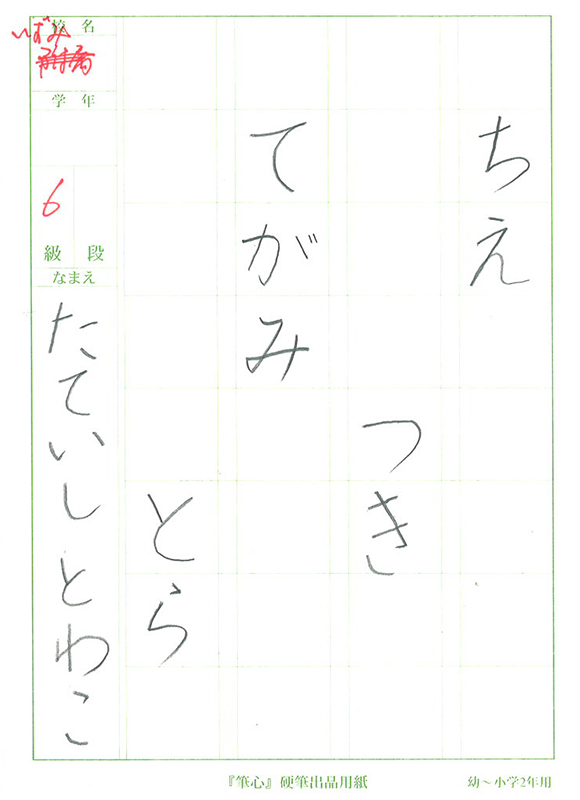 ちえ
つき
てがみ
とら
校名
いずみ
学年
6
級 段
なまえ
たていし とわこ
『筆心』硬筆出品用紙
幼～小学2年用